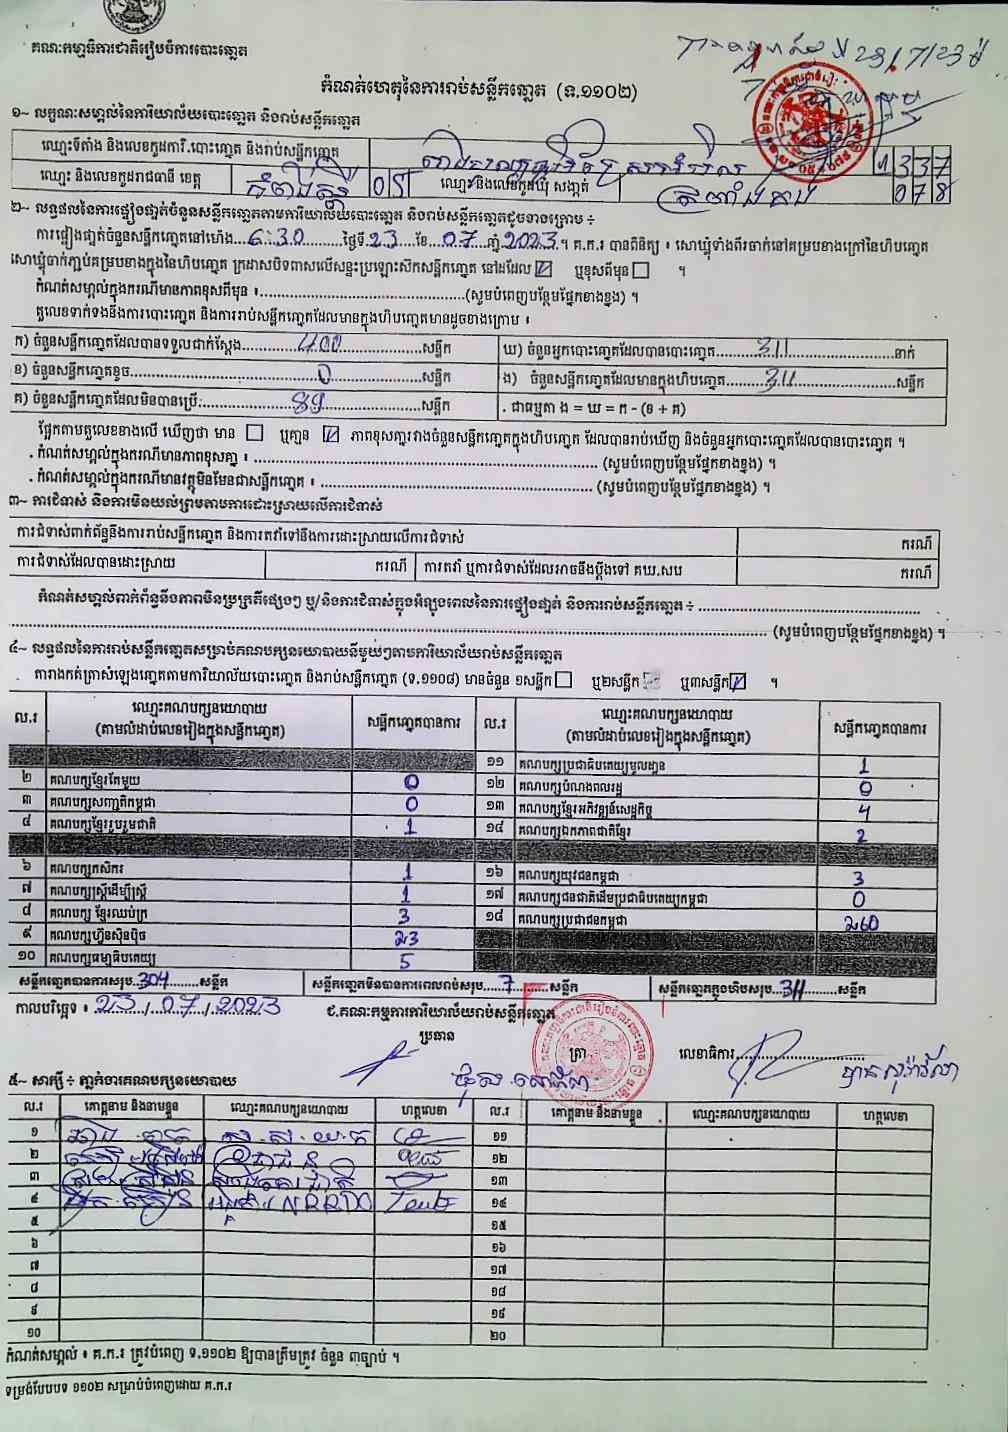 គណៈកម្មាធិការជាតិរៀបចំការបោះឆ្នោត
23/7/23
កំណត់ហេតុនៃការរាប់សន្លឹកឆ្នោត (ទ.១១០២)
១~ លក្ខណៈសម្គាល់នៃការិយាល័យបោះឆ្នោត និងរាប់សន្លឹកឆ្នោត
ឈ្មោះទីតាំង និងលេខកូដការិ.បោះឆ្នោត និងរាប់សន្លឹកឆ្នោត 1337
ឈ្មោះ និងលេខកូដរាជធានី ខេត្ត កំពង់ស្ពឺ 05 ឈ្មោះ និងលេខកូដឃុំ សង្កាត់ 078
២~ លទ្ធផលនៃការផ្ទៀងផ្ទាត់ចំនួនសន្លឹកឆ្នោតតាមការិយាល័យបោះឆ្នោត និងរាប់សន្លឹកឆ្នោតដូចខាងក្រោម ៖
ការផ្ទៀងផ្ទាត់ចំនួនសន្លឹកឆ្នោតនៅម៉ោង 6:30 ថ្ងៃទី 23 ខែ 07 ឆ្នាំ 2023 ។ គ.ក.រ បានពិនិត្យ ៖ សោឃ្លុំទាំងពីរចាក់នៅគម្របខាងក្រៅនៃហិបឆ្នោត
សោឃ្លុំចាក់ភ្ជាប់គម្របខាងក្នុងនៃហិបឆ្នោត ក្រដាសបិទពាសលើសន្ទះប្រឡោះស៊កសន្លឹកឆ្នោត នៅដដែល ☑ ឬខុសពីមុន ☐ ។
កំណត់សម្គាល់ក្នុងករណីមានភាពខុសពីមុន ៖ (សូមបំពេញបន្ថែមផ្នែកខាងខ្នង) ។
តួលេខទាក់ទងនឹងការបោះឆ្នោត និងការរាប់សន្លឹកឆ្នោតដែលមានក្នុងហិបឆ្នោតមានដូចខាងក្រោម ៖
ក) ចំនួនសន្លឹកឆ្នោតដែលបានទទួលជាក់ស្តែង 400 សន្លឹក ឃ) ចំនួនអ្នកបោះឆ្នោតដែលបានបោះឆ្នោត 311 នាក់
ខ) ចំនួនសន្លឹកឆ្នោតខូច 0 សន្លឹក ង) ចំនួនសន្លឹកឆ្នោតដែលមានក្នុងហិបឆ្នោត 311 សន្លឹក
គ) ចំនួនសន្លឹកឆ្នោតដែលមិនបានប្រើ 89 សន្លឹក . ជាធម្មតា ង = ឃ = ក - (ខ + គ)
ផ្អែកតាមតួលេខខាងលើ ឃើញថា មាន ☐ ឬគ្មាន ☑ ភាពខុសគ្នារវាងចំនួនសន្លឹកឆ្នោតក្នុងហិបឆ្នោត ដែលបានរាប់ឃើញ និងចំនួនអ្នកបោះឆ្នោតដែលបានបោះឆ្នោត ។
. កំណត់សម្គាល់ក្នុងករណីមានភាពខុសគ្នា ៖ (សូមបំពេញបន្ថែមផ្នែកខាងខ្នង) ។
. កំណត់សម្គាល់ក្នុងករណីមានវត្ថុមិនមែនជាសន្លឹកឆ្នោត ៖ (សូមបំពេញបន្ថែមផ្នែកខាងខ្នង) ។
៣~ ការជំទាស់ និងការមិនយល់ព្រមតាមការដោះស្រាយលើការជំទាស់
ការជំទាស់ពាក់ព័ន្ធនឹងការរាប់សន្លឹកឆ្នោត និងការតវ៉ាទៅនឹងការដោះស្រាយលើការជំទាស់ ករណី
ការជំទាស់ដែលបានដោះស្រាយ ករណី ការតវ៉ា ឬការជំទាស់ដែលអាចនឹងប្តឹងទៅ គឃ.សប ករណី
កំណត់សម្គាល់ពាក់ព័ន្ធនឹងភាពមិនប្រក្រតីផ្សេងៗ ឬ/និងការជំទាស់ក្នុងអំឡុងពេលនៃការផ្ទៀងផ្ទាត់ និងការរាប់សន្លឹកឆ្នោត ៖
(សូមបំពេញបន្ថែមផ្នែកខាងខ្នង) ។
៤~ លទ្ធផលនៃការរាប់សន្លឹកឆ្នោតសម្រាប់គណបក្សនយោបាយនីមួយៗតាមការិយាល័យរាប់សន្លឹកឆ្នោត
តារាងកត់ត្រាសំឡេងឆ្នោតតាមការិយាល័យបោះឆ្នោត និងរាប់សន្លឹកឆ្នោត (ទ.១១០៨) មានចំនួន ១សន្លឹក ☐ ឬ២សន្លឹក ឬ៣សន្លឹក ☑ ។
ល.រ ឈ្មោះគណបក្សនយោបាយ (តាមលំដាប់លេខរៀងក្នុងសន្លឹកឆ្នោត) សន្លឹកឆ្នោតបានការ ល.រ ឈ្មោះគណបក្សនយោបាយ (តាមលំដាប់លេខរៀងក្នុងសន្លឹកឆ្នោត) សន្លឹកឆ្នោតបានការ
១១ គណបក្សប្រជាធិបតេយ្យមូលដ្ឋាន 1
២ គណបក្សខ្មែរតែមួយ 0 ១២ គណបក្សបំណងពលរដ្ឋ 0
៣ គណបក្សសញ្ជាតិកម្ពុជា 0 ១៣ គណបក្សខ្មែរអភិវឌ្ឍន៍សេដ្ឋកិច្ច 4
៤ គណបក្សខ្មែររួបរួមជាតិ 1 ១៤ គណបក្សឯកភាពជាតិខ្មែរ 2
៦ គណបក្សកសិករ 1 ១៦ គណបក្សយុវជនកម្ពុជា 3
៧ គណបក្សស្ត្រីដើម្បីស្ត្រី 1 ១៧ គណបក្សជនជាតិដើមប្រជាធិបតេយ្យកម្ពុជា 0
៨ គណបក្ស ខ្មែរឈប់ក្រ 3 ១៨ គណបក្សប្រជាជនកម្ពុជា 260
៩ គណបក្សហ៊្វុនស៊ិនប៉ិច 23
១០ គណបក្សធម្មាធិបតេយ្យ 5
សន្លឹកឆ្នោតបានការសរុប 304 សន្លឹក សន្លឹកឆ្នោតមិនបានការពេលរាប់សរុប 7 សន្លឹក សន្លឹកឆ្នោតក្នុងហិបសរុប 311 សន្លឹក
កាលបរិច្ឆេទ ៖ 23/07/2023 ជ.គណៈកម្មការការិយាល័យរាប់សន្លឹកឆ្នោត
ប្រធាន
ត្រា លេខាធិការ
៥~ សាក្សី ៖ ភ្នាក់ងារគណបក្សនយោបាយ
ល.រ គោត្តនាម និងនាមខ្លួន ឈ្មោះគណបក្សនយោបាយ ហត្ថលេខា ល.រ គោត្តនាម និងនាមខ្លួន ឈ្មោះគណបក្សនយោបាយ ហត្ថលេខា
១ ១១
២ ១២
៣ ១៣
៤ ១៤
៥ ១៥
៦ ១៦
៧ ១៧
៨ ១៨
៩ ១៩
១០ ២០
កំណត់សម្គាល់ ៖ គ.ក.រ ត្រូវបំពេញ ទ.១១០២ ឱ្យបានត្រឹមត្រូវ ចំនួន ៣ច្បាប់ ។
ទម្រង់បែបបទ ១១០២ សម្រាប់បំពេញដោយ គ.ក.រ